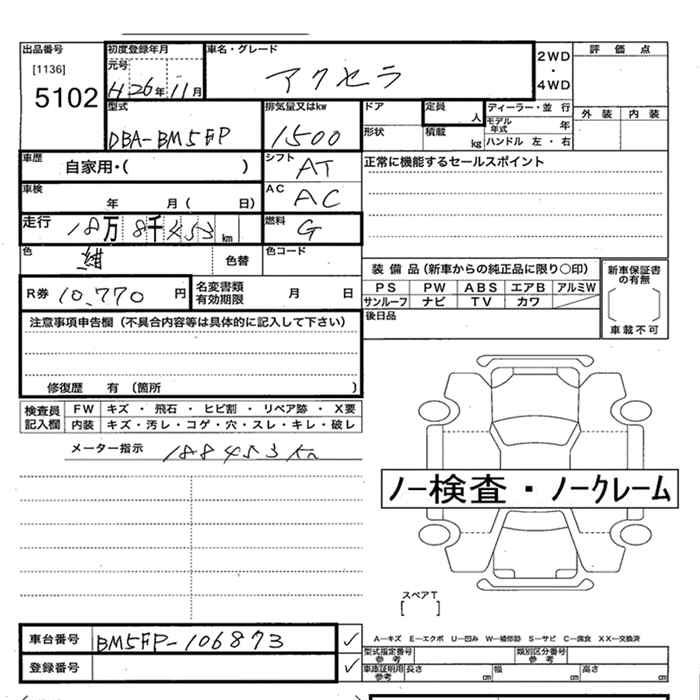 出品番号 初度登録年月 車名・グレード 評価点
[1136] 元号 アクセラ 2WD
5102 H26年11月 4WD
外装 内装
型式 排気量又はkw ドア 定員 人 ディーラー・並行
DBA-BM5FP 1500 形状 積載 kg モデル年式 年
ハンドル 左・右
車歴 自家用・( ) シフト AT 正常に機能するセールスポイント
車検 年 月( 日) AC AC
走行 18万8千453km 燃料 G
色 紺 色替 色コード
装備品(新車からの純正品に限り○印) 新車保証書の有無
R券 10,770円 名変書類有効期限 月 日 PS PW ABS エアB アルミW
サンルーフ ナビ TV カワ 車載不可
注意事項申告欄(不具合内容等は具体的に記入して下さい) 後日品
修復歴 有(箇所 )
検査員 FW キズ・飛石・ヒビ割・リペア跡・X要
記入欄 内装 キズ・汚レ・コゲ・穴・スレ・キレ・破レ
メーター指示 188453km
ノー検査・ノークレーム
スペアT
[ ]
車台番号 BM5FP-106873 ✓ A―キズ E―エクボ U―凹み W―補修跡 S―サビ C―腐食 XX―交換済
型式指定番号 参考 類別区分番号 参考
登録番号 ✓ 車庫証明用 参考 長さ cm 幅 cm 高さ cm